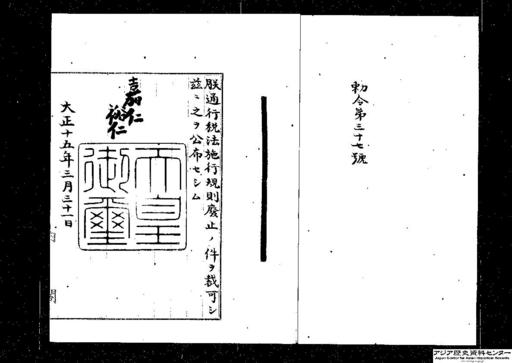 勅令第三十七號
朕通行税法施行規則廢止ノ件ヲ裁可シ
茲ニ之ヲ公布セシム
嘉仁
裕仁
天皇
御璽
大正十五年三月三十一日
内閣
アジア歴史資料センター
Japan Center for Asian Historical Records